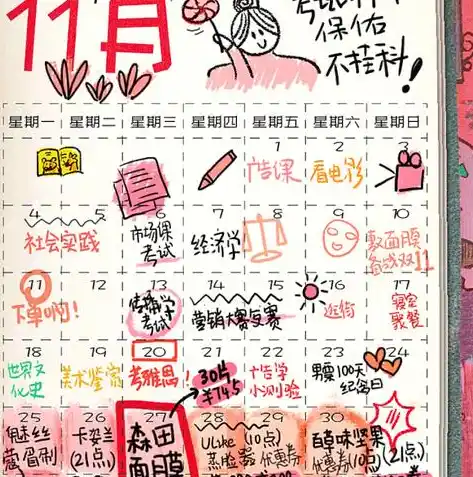 11月
考试
保佑
不挂科!
星期一 星期二 星期三 星期四 星期五 星期六 星期日
1 2 3
广告课 看电影
4 6 7 8 9 10
社会实践 市场课 考试 经济学 敷面膜 备战双11
11 12 13 14 15 16 17
下单啊! 传播学 考试 营销大赛复赛 逛街 寝室 聚餐
18 19 20 21 22 23 24
世界文化史 美术鉴赏 考雅思! 30片 ¥745 广告学 小测验 男票100天 纪念日
25 26 27 28 29 30
魅丝蔻眉制 卡姿兰 (21点) 森田 面膜 Ulike (10点) 蒸脸器 优惠券 百草味坚果 优惠券(10点) (21点)